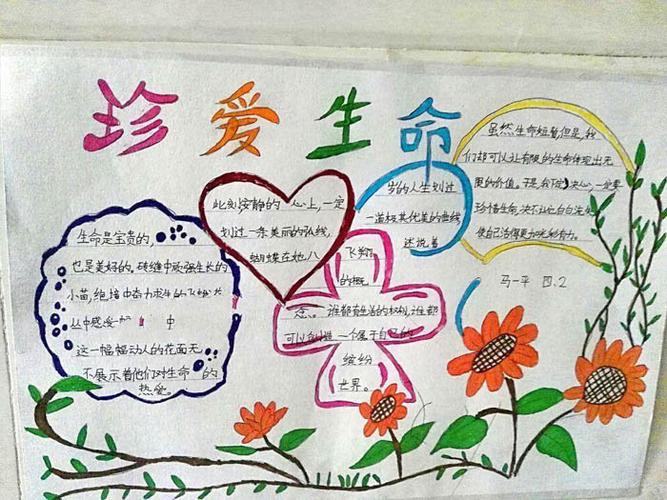 珍爱生命
生命是宝贵的,
也是美好的。砖缝中顽强生长的
小苗,绝境中奋力求生的飞蛾
丛中感受 中
这一幅幅动人的花面无
不展示着他们对生命的
热爱。
此刻安静的心上,一定
划过一条美丽的弘线,
蝴蝶在她八
岁的人生划过
一道极其优美的曲线,
述说着
飞翔
的概
念。谁都有生活的权利,谁都
可以创造一个属于自己的
缤纷
世界。
虽然生命短暂但是,我
们却可以让有限的生命体现出无
限的价值。于是,我下定决心,一定要
珍惜生命,决不让它白白流失
使自己活得更加光彩有力。
马一平 四.2